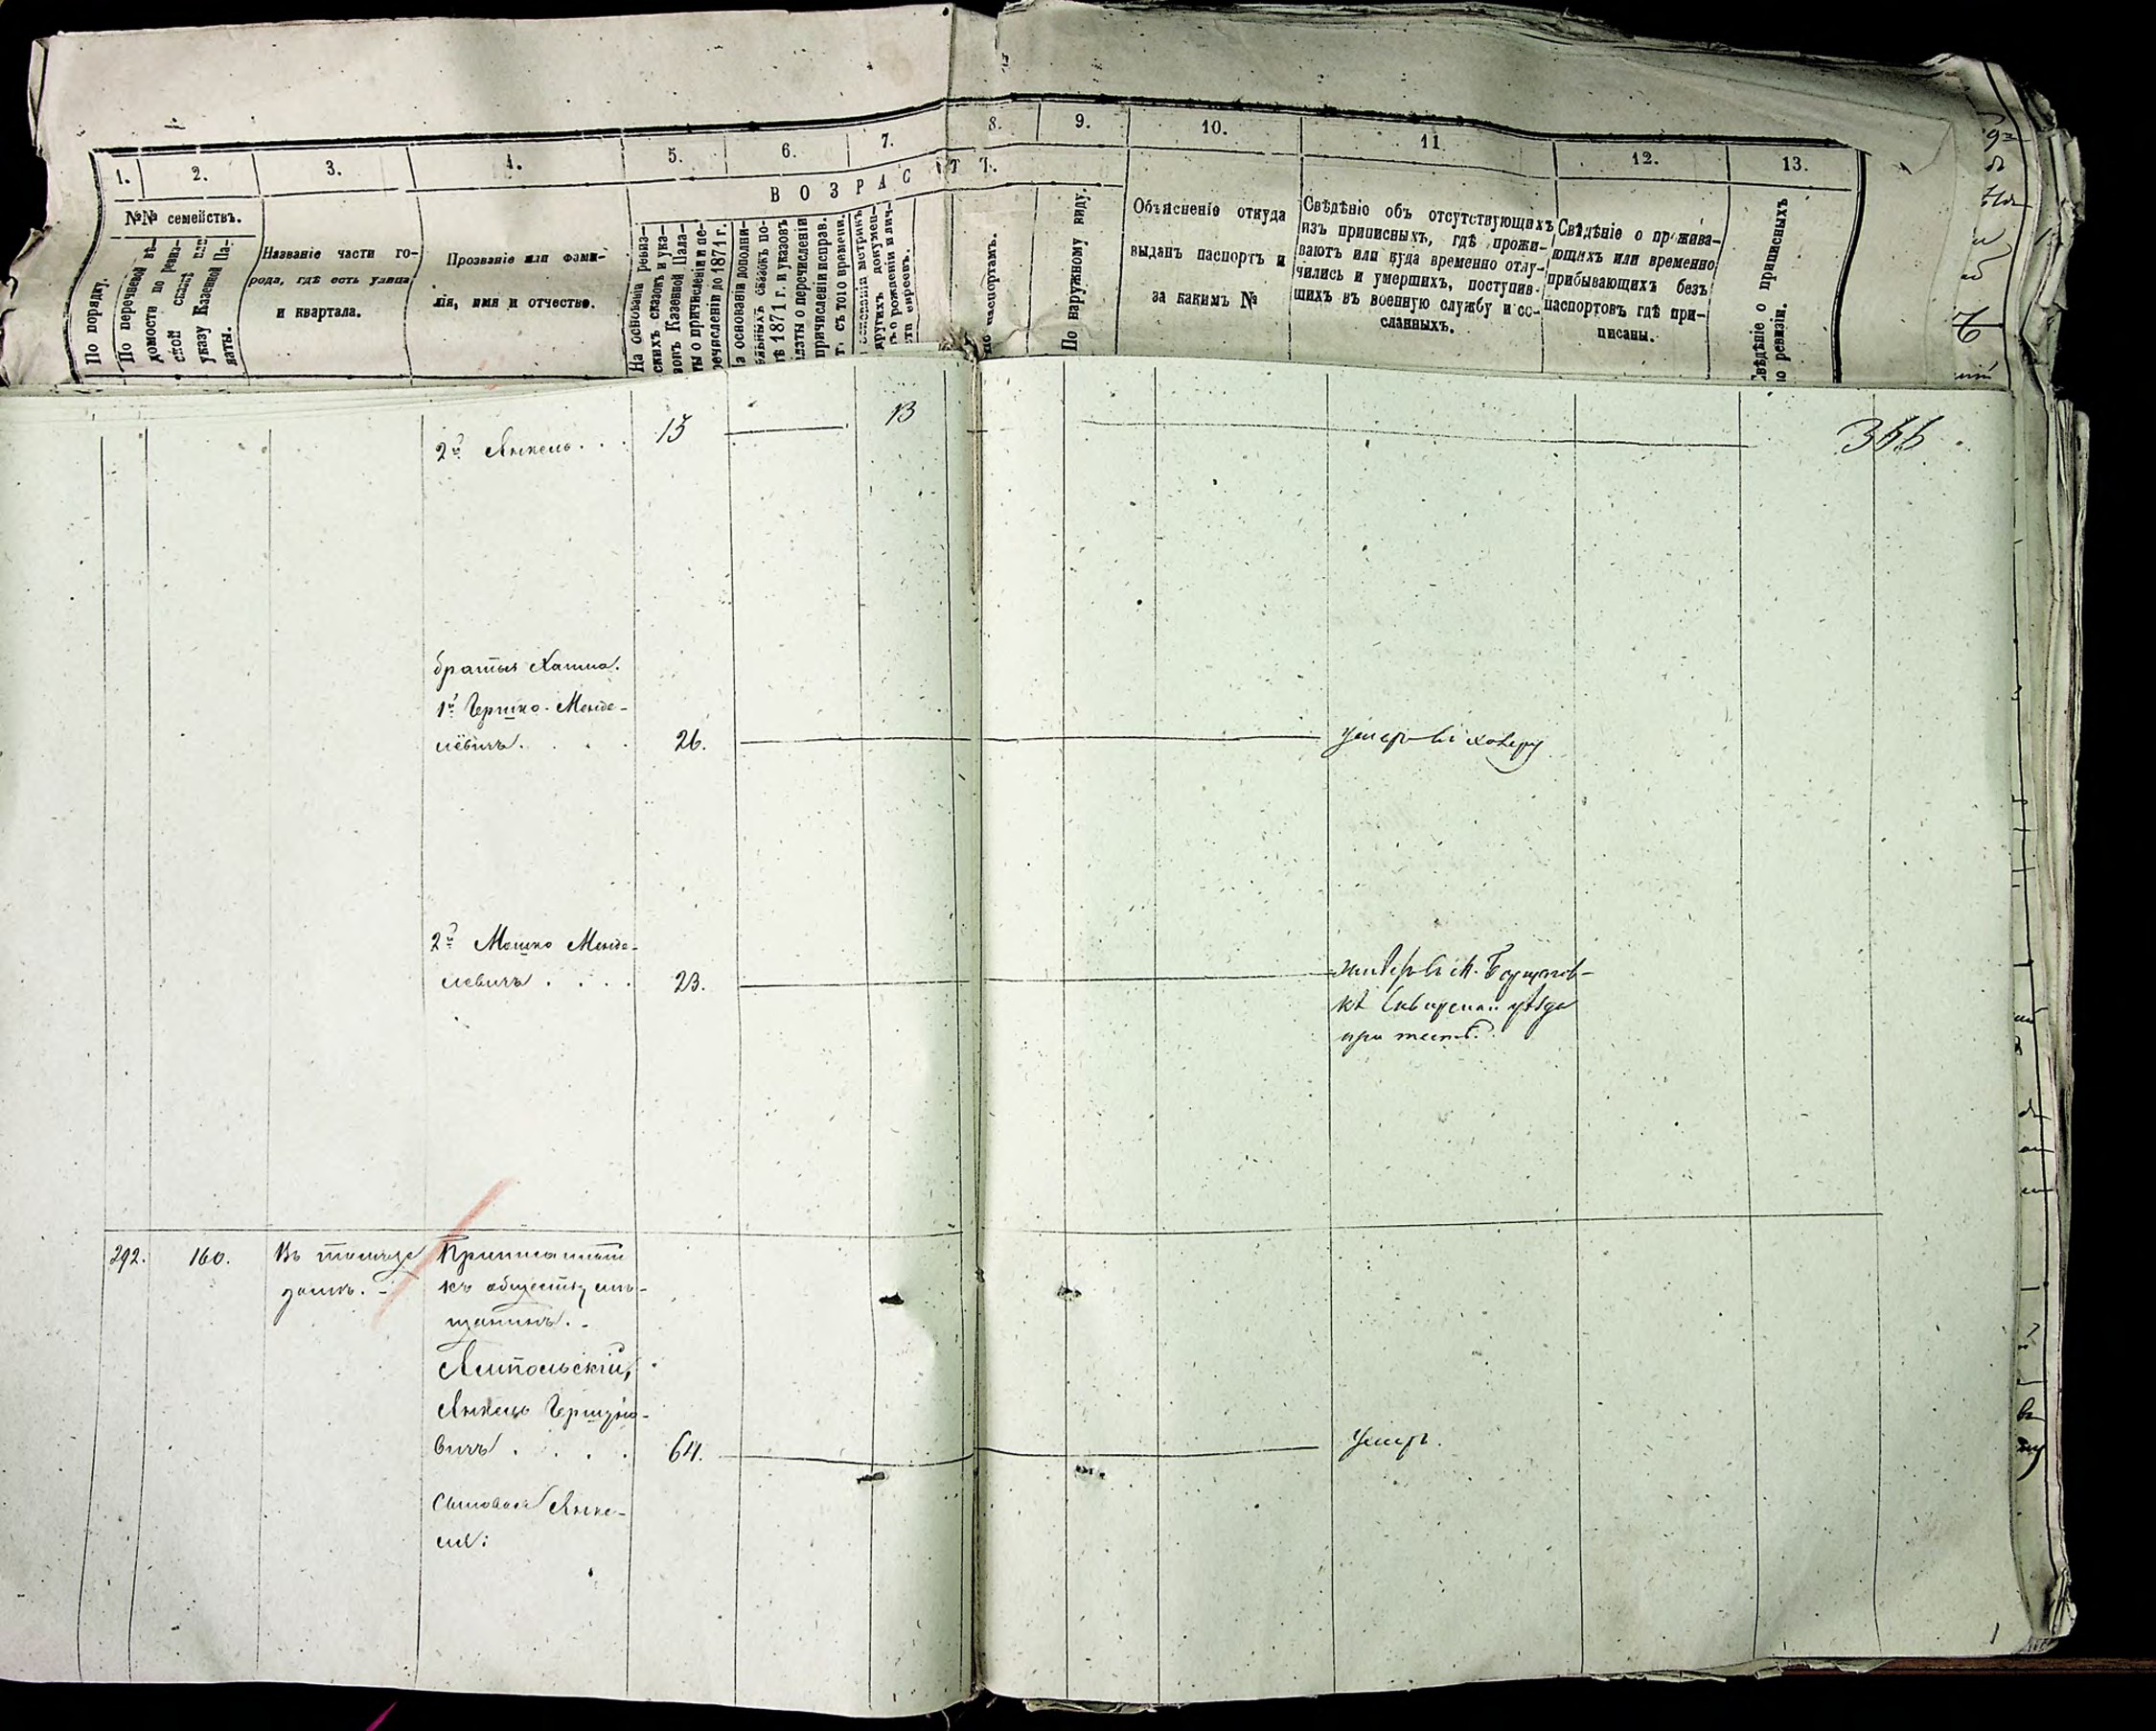 1. 2. 3. 4. 5. 6. 7. 8. 9. 10. 11. 12. 13.
№№ семействъ.
В О З Р А С Т Ъ.
По порядку.
По перечневой вѣ-
домости по ревиз-
ской сказкѣ или
указу Казенной Па-
латы.
Названіе части го-
рода, гдѣ есть улица
и квартала.
Прозваніе или фами-
лія, имя и отчество.
На основаніи ревиз-
скихъ сказокъ и ука-
зовъ Казенной Пала-
ты о причисленіи и пе-
речисленіи до 1871 г.
а основаніи дополни-
ельныхъ сказокъ по-
лѣ 1871 г. и указовъ
латы о перечисленіи
причисленіи исправ.
г. съ того времени.
основаніи метрикъ
другихъ докумен-
ъ о рожденіи и лич-
сти евреевъ.
паспортамъ.
По наружному виду.
Объясненіе откуда
выданъ паспортъ и
за какимъ №
Свѣдѣніе объ отсутствующихъ
изъ приписныхъ, гдѣ прожи-
ваютъ или куда временно отлу-
чились и умершихъ, поступив-
шихъ въ военную службу и со-
сланныхъ.
Свѣдѣніе о прожива-
ющихъ или временно
прибывающихъ безъ
паспортовъ гдѣ при-
писаны.
Свѣдѣніе о приписныхъ
по ревизіи.
2й Янкель. . . 15 13
братья Хаима.
1й Гершко Менде-
левичъ. . . . 26. Умеръ въ холеру
2й Мошко Менде-
левичъ . . . . 23. живетъ въ м.
Сквирскаго уѣзда
при тестѣ.
292. 160. Въ
домѣ. Приписанный
къ обществу мѣ-
щанинъ.
Ямпольскій,
Янкель Гершко-
вичъ . . . . 64. Умеръ.
Сыновья Янке-
ля: